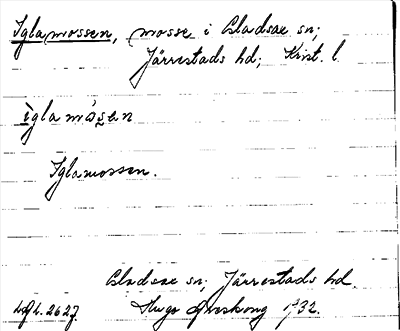 Iglamossen, mosse i Gladsax sn;
Järrestads hd; Krist. l.
ìgla måsen
Iglamossen.
Gladsax sn; Järrestads hd.
Hugo Areskoug 1932.